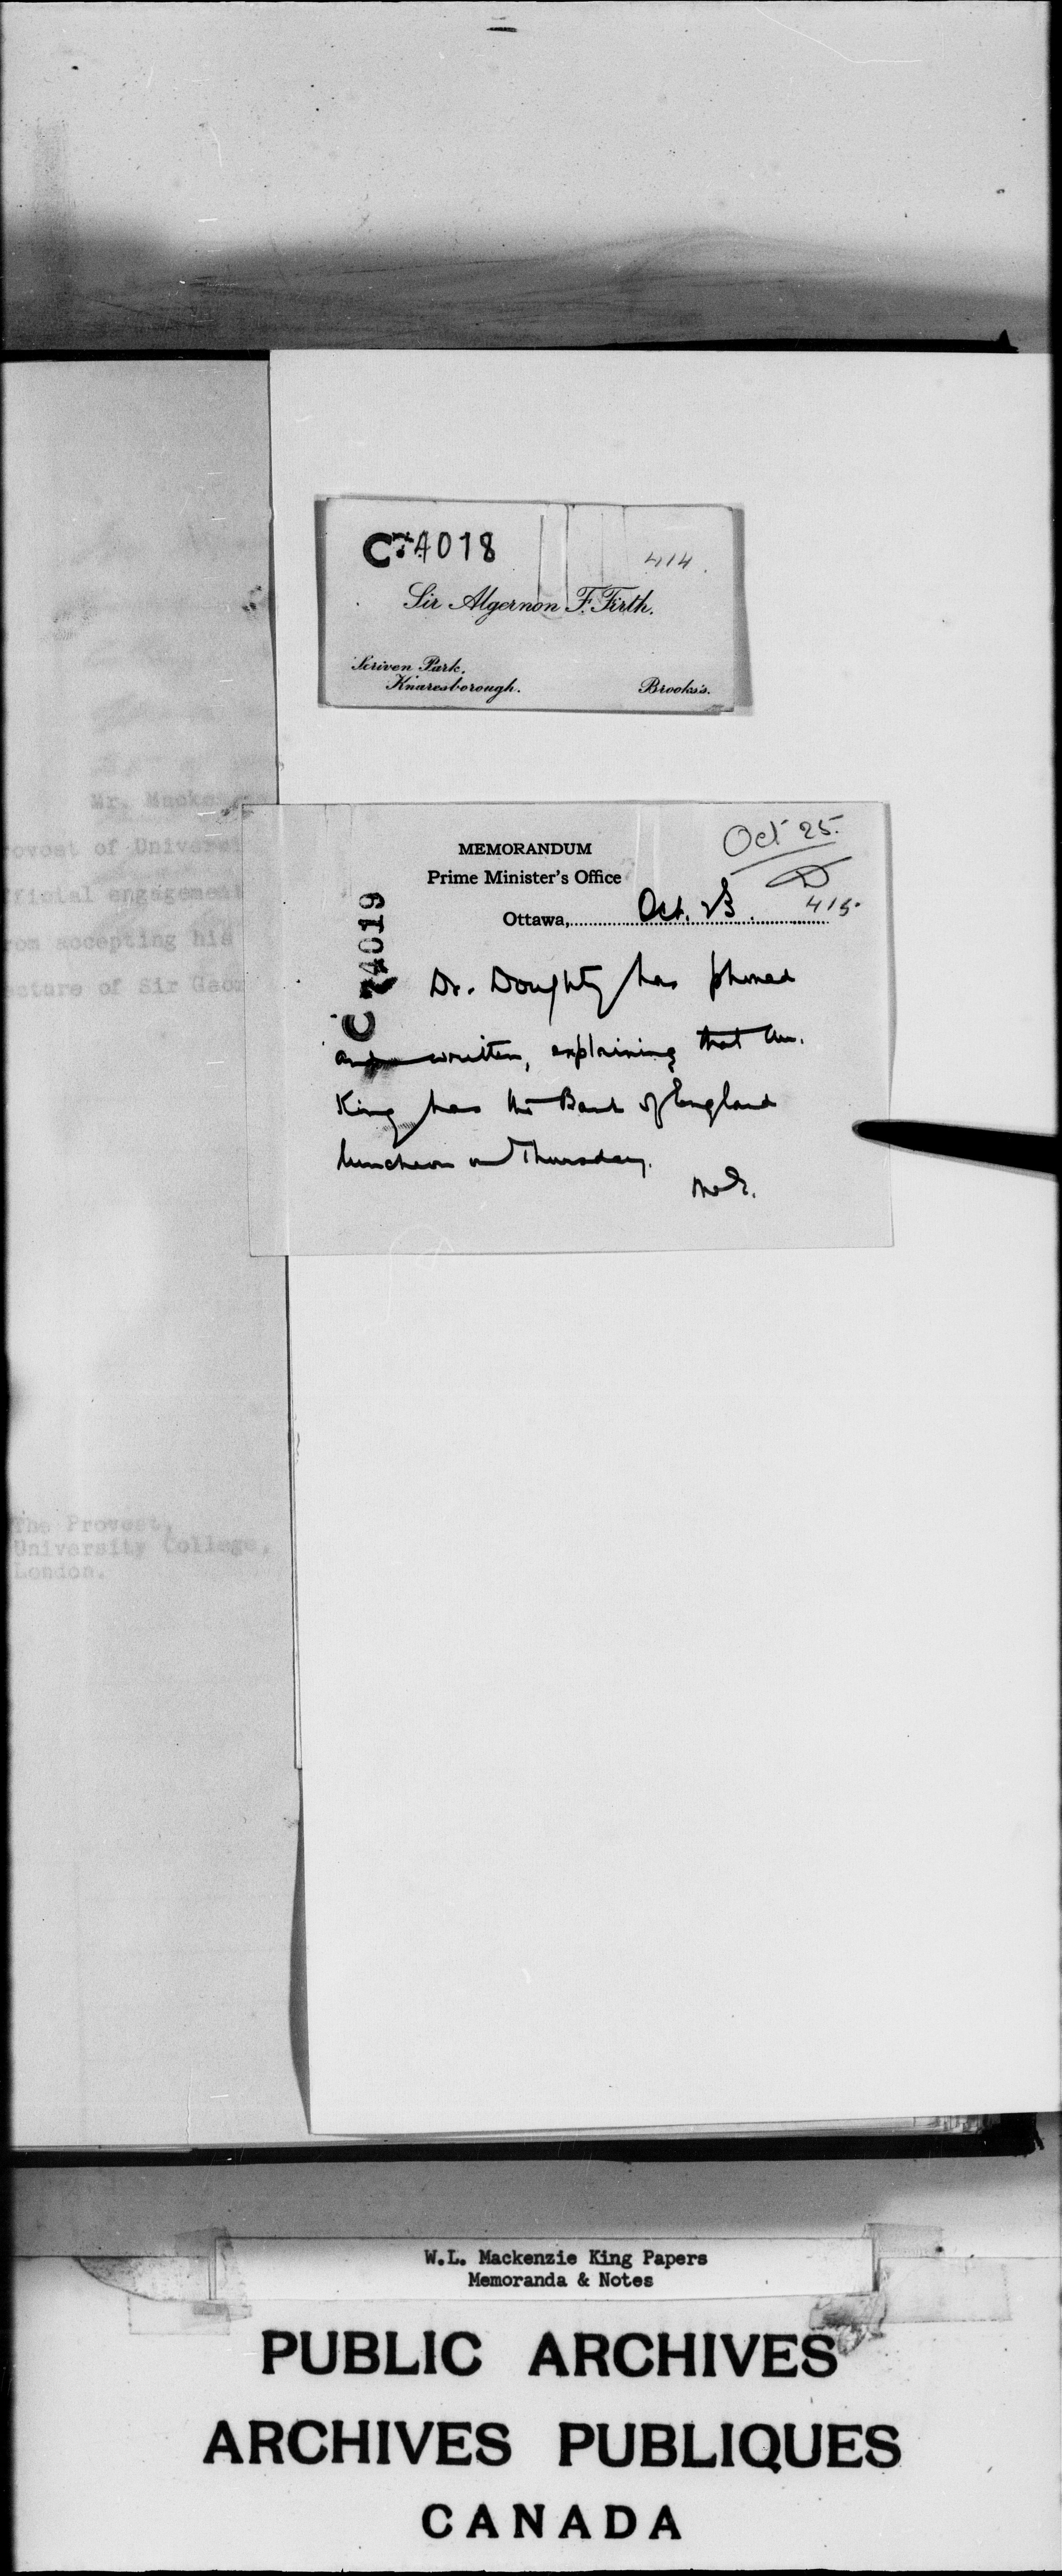 C74018
414.
Sir Algernon F. Firth.
Scriven Park,
Knaresborough.
Brooks's.
Mr. Macke
rovost of Universi
fficial engagement
rom accepting his
ecture of Sir Geor
The Provost,
University College,
London.
Oct 25.
D
415.
MEMORANDUM
Prime Minister's Office
Ottawa, Oct. 23.
C 74019
Dr. Doughty has phoned
and written, explaining that Mr.
King has the Bank of England
luncheon on Thursday.
W.L. Mackenzie King Papers
Memoranda & Notes
PUBLIC ARCHIVES
ARCHIVES PUBLIQUES
CANADA